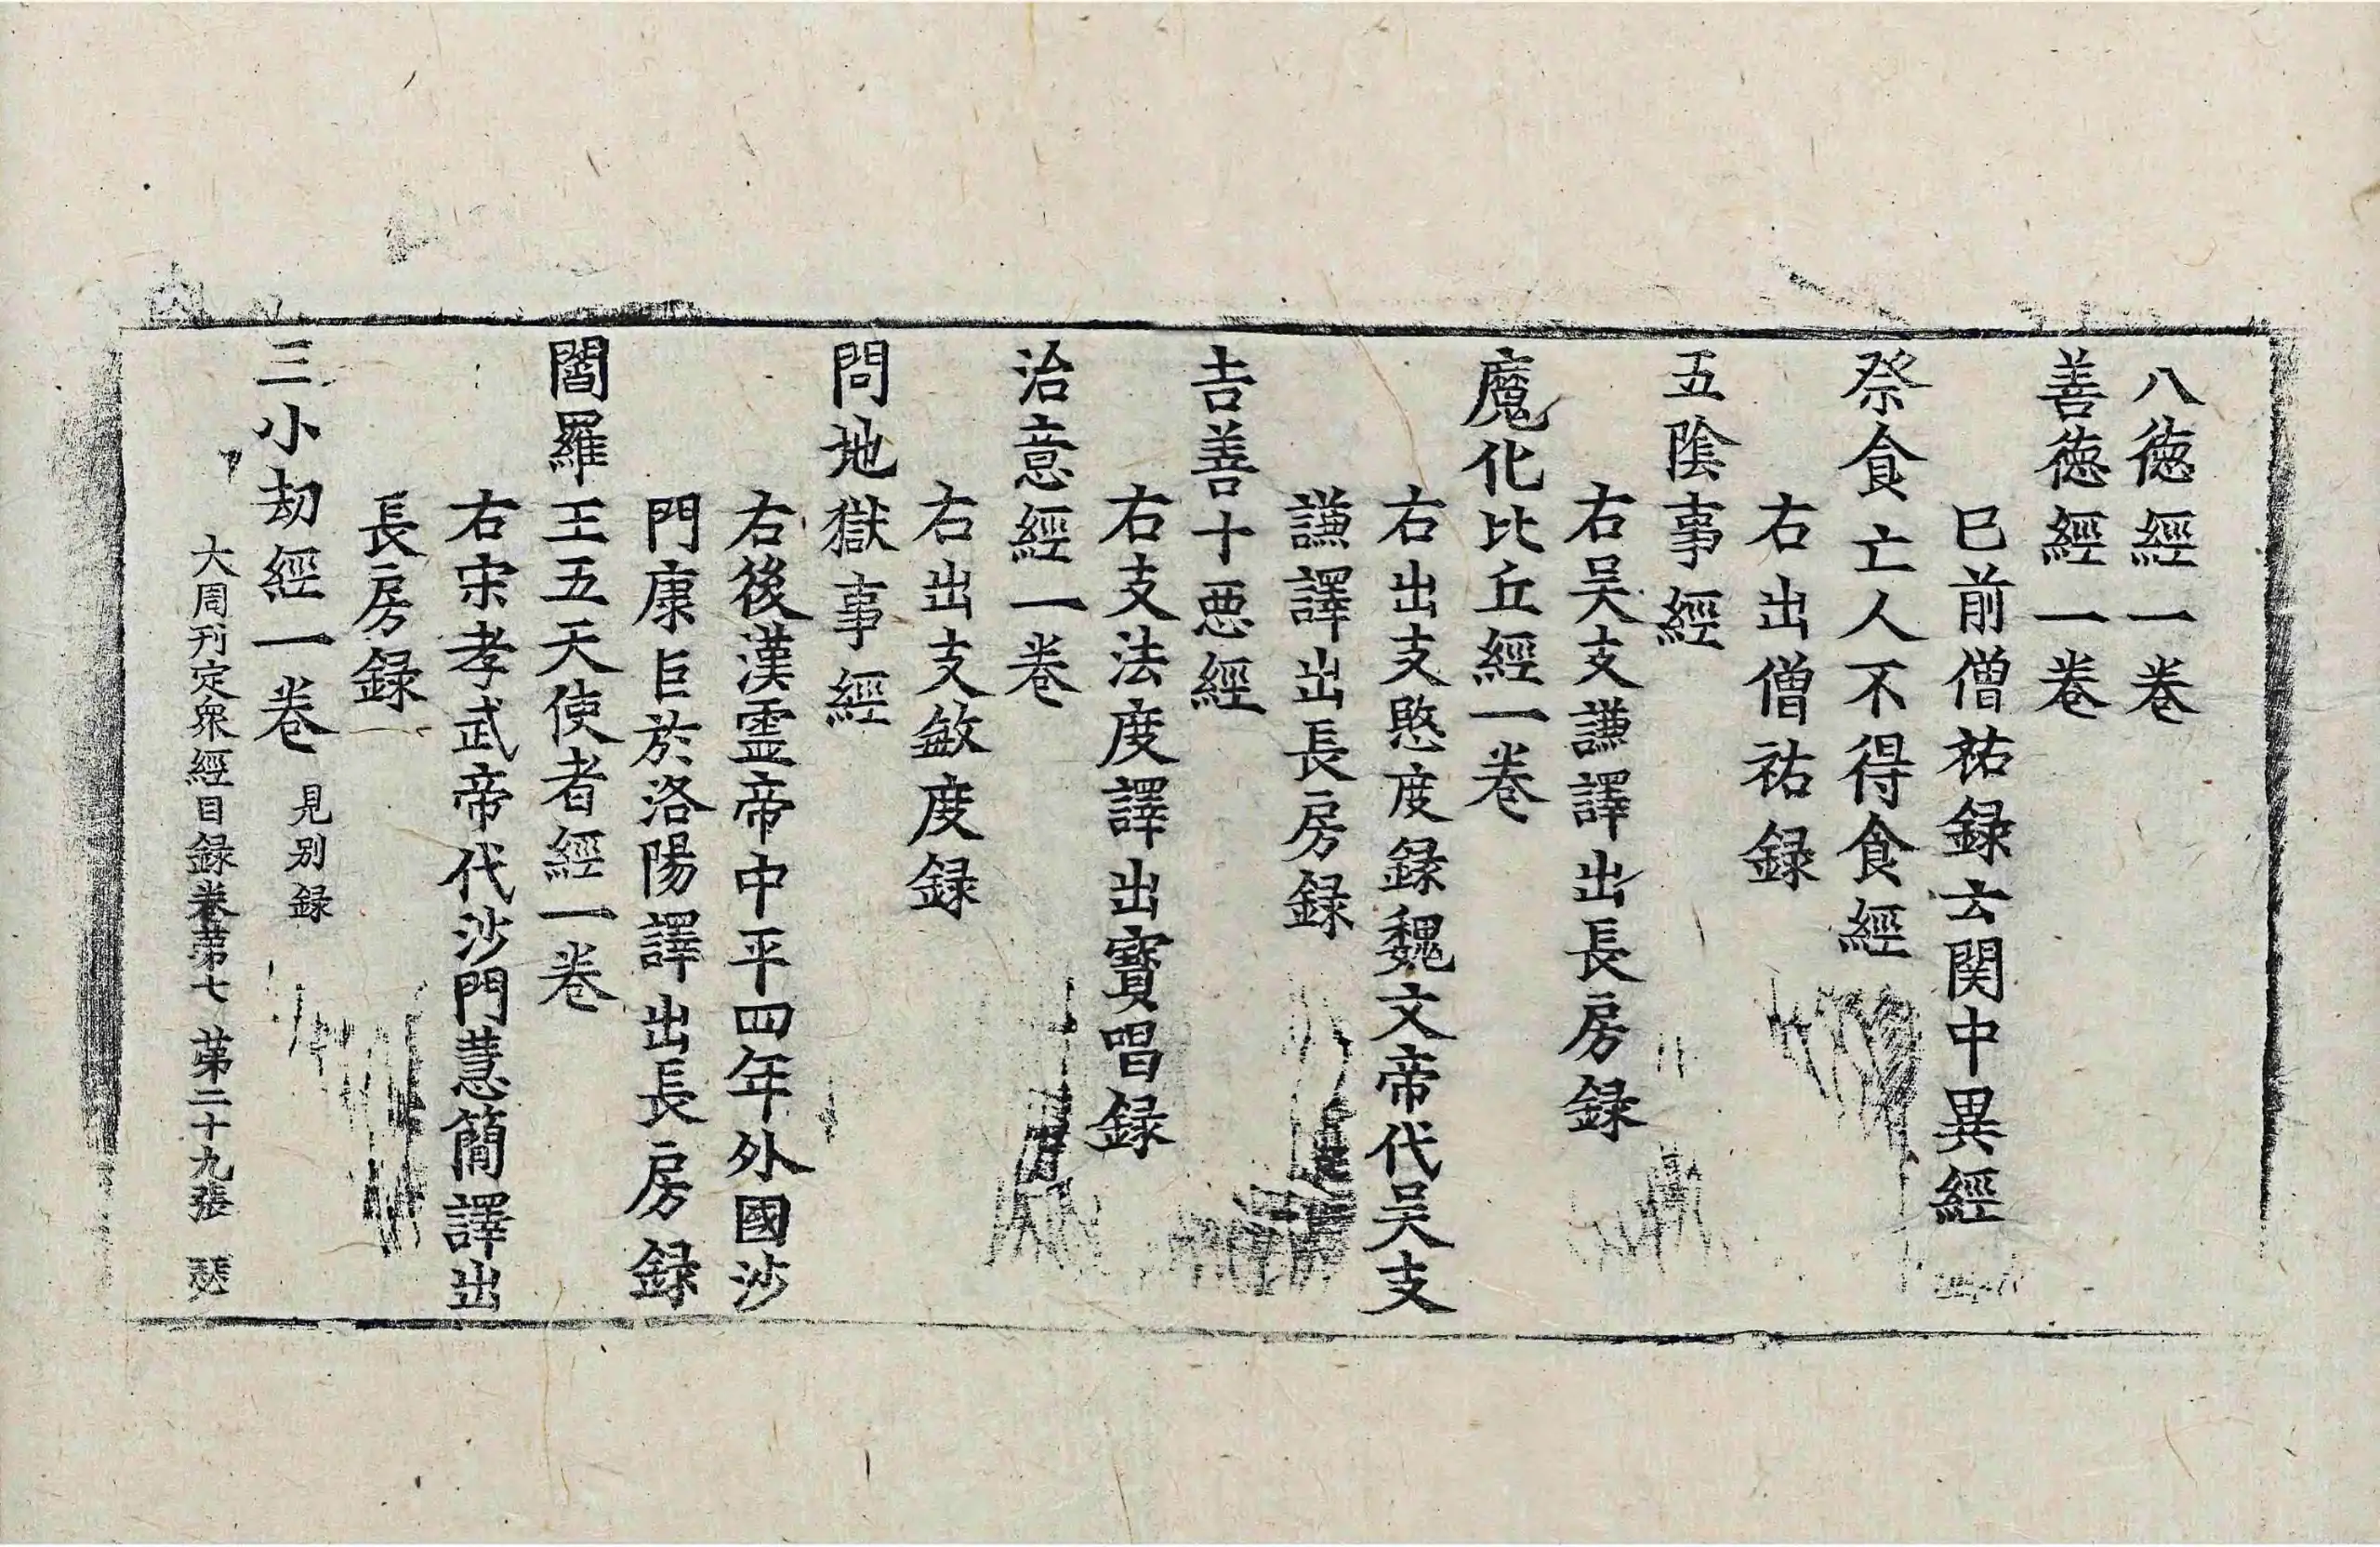 八德經一卷
善德經一卷
已前僧祐録云関中異經
祭食亡人不得食經
右出僧祐録
五陰事經
右吴支謙譯出長房録
魔化比丘經一卷
右出支愍度録魏文帝代吴支
謙譯出長房録
吉善十惡經
右支法度譯出寶唱録
治意經一卷
右出支敏度録
問地獄事經
右後漢靈帝中平四年外國沙
門康巨於洛陽譯出長房録
閻羅王五天使者經一卷
右宋孝武帝代沙門慧簡譯出
長房録
三小劫經一卷 見別録
大周刊定衆經目録卷第七 第二十九張 瑟